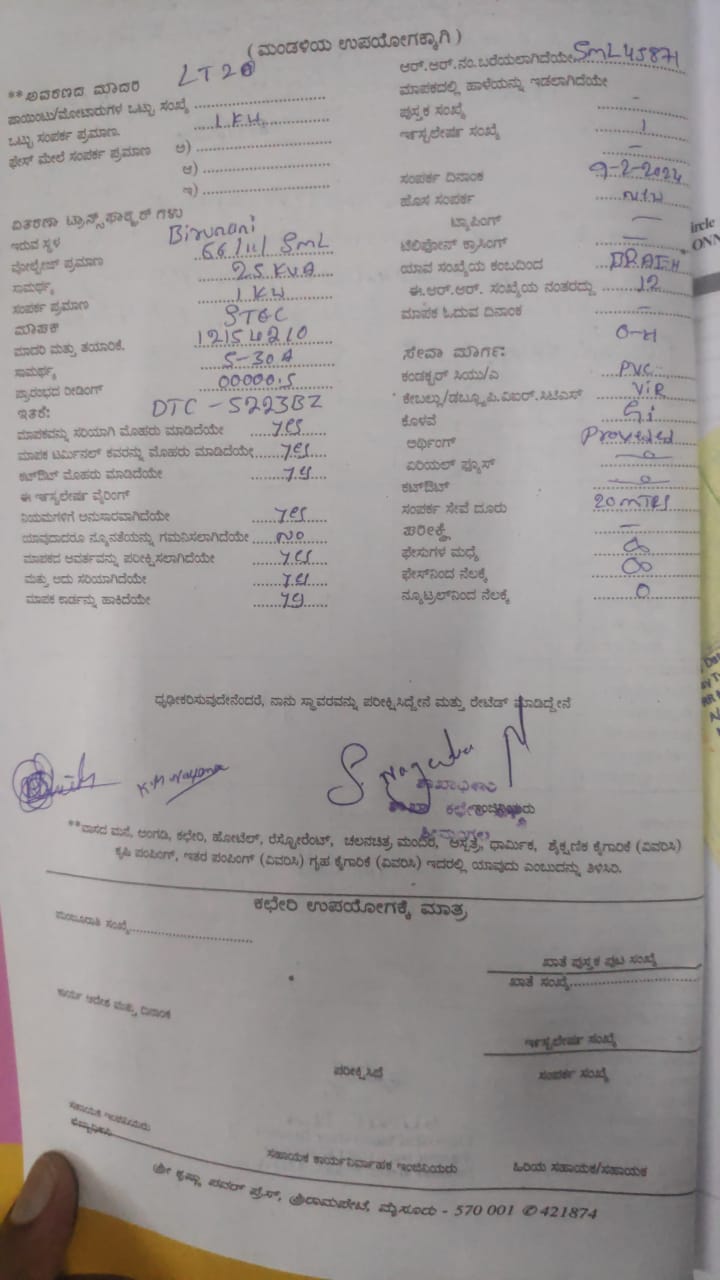 ( ಮಂಡಳಿಯ ಉಪಯೋಗಕ್ಕಾಗಿ )
**ಆವರಣದ ಮಾದರಿ LT2
ಪಾಯಿಂಟು/ಮೋಟಾರುಗಳ ಒಟ್ಟು ಸಂಖ್ಯೆ
ಒಟ್ಟು ಸಂಪರ್ಕ ಪ್ರಮಾಣ. 1 KW
ಫೇಸ್ ಮೇಲೆ ಸಂಪರ್ಕ ಪ್ರಮಾಣ ಅ)
ಆ)
ಇ)
ವಿತರಣಾ ಟ್ರಾನ್ಸ್‌ಫಾರ್ಮರ್ ಗಳು
ಇರುವ ಸ್ಥಳ Birunani
ವೋಲ್ಟೇಜ್ ಪ್ರಮಾಣ 66/11/ SML
ಸಾಮರ್ಥ್ಯ 25 KVA
ಸಂಪರ್ಕ ಪ್ರಮಾಣ 1 KW
ಮಾಪಕ
ಮಾದರಿ ಮತ್ತು ತಯಾರಿಕೆ. 12154210
ಸಾಮರ್ಥ್ಯ 5-30A
ಪ್ರಾರಂಭದ ರೀಡಿಂಗ್ 00000.5
ಇತರೆ: DTC - 5223BZ
ಮಾಪಕವನ್ನು ಸರಿಯಾಗಿ ಮೊಹರು ಮಾಡಿದೆಯೇ yes
ಮಾಪಕ ಟರ್ಮಿನಲ್ ಕವರನ್ನು ಮೊಹರು ಮಾಡಿದೆಯೇ yes
ಕಟ್‌ಔಟ್ ಮೊಹರು ಮಾಡಿದೆಯೇ yes
ಈ ಇನ್ಸ್ಟಲೇಷನ್ ವೈರಿಂಗ್
ನಿಯಮಗಳಿಗೆ ಅನುಸಾರವಾಗಿದೆಯೇ yes
ಯಾವುದಾದರೂ ನ್ಯೂನತೆಯನ್ನು ಗಮನಿಸಲಾಗಿದೆಯೇ No
ಮಾಪಕದ ಆವರ್ತವನ್ನು ಪರೀಕ್ಷಿಸಲಾಗಿದೆಯೇ yes
ಮತ್ತು ಅದು ಸರಿಯಾಗಿದೆಯೇ yes
ಮಾಪಕ ಕಾರ್ಡನ್ನು ಹಾಕಿದೆಯೇ yes
ಆರ್.ಆರ್.ನಂ.ಬರೆಯಲಾಗಿದೆಯೇ SML45871
ಮಾಪಕದಲ್ಲಿ ಹಾಳೆಯನ್ನು ಇಡಲಾಗಿದೆಯೇ
ಪುಸ್ತಕ ಸಂಖ್ಯೆ -
ಇನ್ಸ್ಟಲೇಷನ್ ಸಂಖ್ಯೆ 1
ಸಂಪರ್ಕ ದಿನಾಂಕ 9-2-2024
ಹೊಸ ಸಂಪರ್ಕ
ಟ್ಯಾಪಿಂಗ್ -
ಟೆಲಿಫೋನ್ ಕ್ರಾಸಿಂಗ್ -
ಯಾವ ಸಂಖ್ಯೆಯ ಕಂಬದಿಂದ
ಈ.ಆರ್.ಆರ್. ಸಂಖ್ಯೆಯ ನಂತರದ್ದು 12
ಮಾಪಕ ಓದುವ ದಿನಾಂಕ -
ಸೇವಾ ಮಾರ್ಗ: O-H
ಕಂಡಕ್ಟರ್ ಸಿಯು/ಎ PVC
ಕೇಬಲ್ಲು/ಡಬ್ಲ್ಯೂ.ಪಿ.ವಿಐಆರ್.ಸಿಟಿಎಸ್ VIR
ಕೊಳವೆ Gi
ಅರ್ಥಿಂಗ್ Proveded
ಏರಿಯಲ್ ಫ್ಯೂಸ್
ಕಟ್‌ಔಟ್
ಸಂಪರ್ಕ ಸೇವೆ ದೂರು 20 mTRS
ಪರೀಕ್ಷೆ -
ಫೇಸುಗಳ ಮಧ್ಯೆ ∞
ಫೇಸ್‌ನಿಂದ ನೆಲಕ್ಕೆ ∞
ನ್ಯೂಟ್ರಲ್‌ನಿಂದ ನೆಲಕ್ಕೆ 0
ircle
ONN
ಧೃಢೀಕರಿಸುವುದೇನೆಂದರೆ, ನಾನು ಸ್ಥಾವರವನ್ನು ಪರೀಕ್ಷಿಸಿದ್ದೇನೆ ಮತ್ತು ರೇಟೆಡ್ ಮಾಡಿದ್ದೇನೆ
K.M Nayana
ಶಾಖಾಧಿಕಾರಿ
ಶಾಖಾ ಕಛೇರಿ ಇಂಜಿನಿಯರು
ಶ್ರೀಮಂಗಲ
**ವಾಸದ ಮನೆ, ಅಂಗಡಿ, ಕಛೇರಿ, ಹೋಟೆಲ್, ರೆಸ್ಟೋರೆಂಟ್, ಚಲನಚಿತ್ರ ಮಂದಿರ, ಆಸ್ಪತ್ರೆ, ಧಾರ್ಮಿಕ, ಶೈಕ್ಷಣಿಕ ಕೈಗಾರಿಕೆ (ವಿವರಿಸಿ)
ಕೃಷಿ ಪಂಪಿಂಗ್, ಇತರ ಪಂಪಿಂಗ್ (ವಿವರಿಸಿ) ಗೃಹ ಕೈಗಾರಿಕೆ (ವಿವರಿಸಿ) ಇದರಲ್ಲಿ ಯಾವುದು ಎಂಬುದನ್ನು ತಿಳಿಸಿರಿ.
ಕಛೇರಿ ಉಪಯೋಗಕ್ಕೆ ಮಾತ್ರ
ಮಂಜೂರಾತಿ ಸಂಖ್ಯೆ
ಖಾತೆ ಪುಸ್ತಕ ಪುಟ ಸಂಖ್ಯೆ
ಖಾತೆ ಸಂಖ್ಯೆ
ಕಾರ್ಯ ಆದೇಶ ಮತ್ತು ದಿನಾಂಕ
ಇನ್ಸ್ಟಲೇಷನ್ ಸಂಖ್ಯೆ
ಪರೀಕ್ಷಿಸಿದೆ
ಸಂಪರ್ಕ ಸಂಖ್ಯೆ
ಸಹಾಯಕ ಇಂಜಿನಿಯರು
ಸಹಾಯಕ ಕಾರ್ಯನಿರ್ವಾಹಕ ಇಂಜಿನಿಯರು
ಹಿರಿಯ ಸಹಾಯಕ/ಸಹಾಯಕ
ಶ್ರೀ ಕೃಷ್ಣಾ ಪವರ್ ಪ್ರೆಸ್, ಶ್ರೀರಾಮಪೇಟೆ, ಮೈಸೂರು - 570 001 ✆ 421874